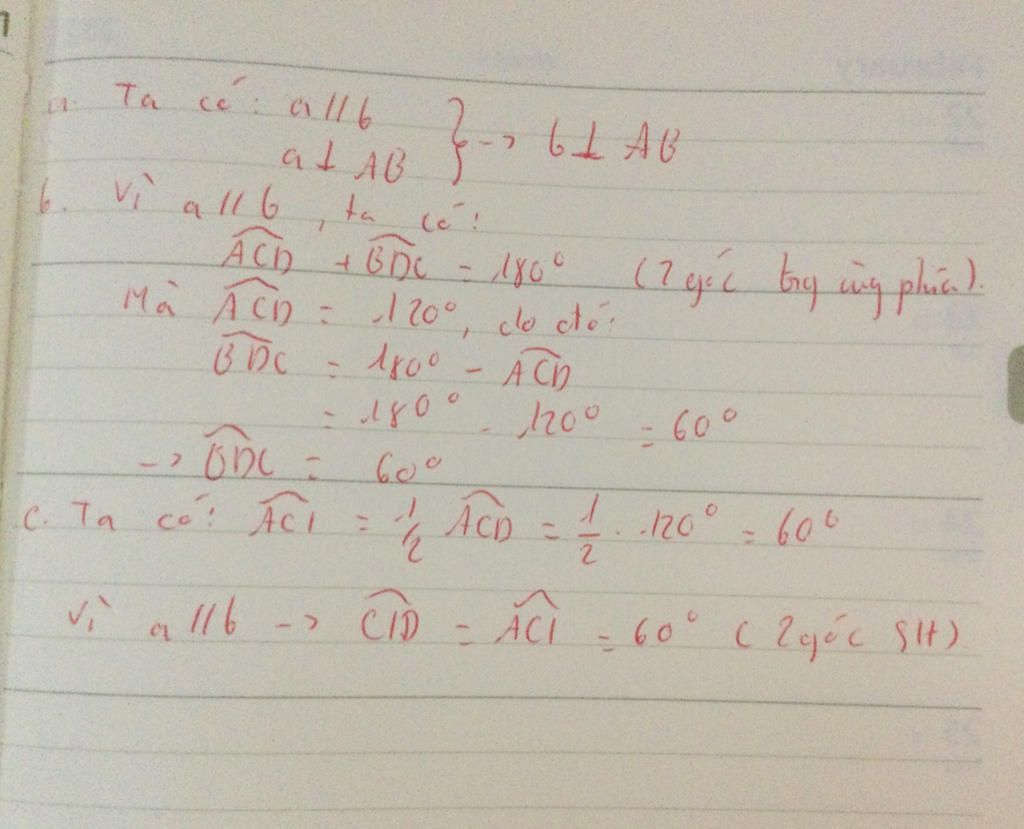 a. Ta có: a//b
a⊥AB } → b⊥AB
b. Vì a//b, ta có:
$\widehat{ACD}$ + $\widehat{BDC}$ = 180° (2 góc cùng phía).
Mà $\widehat{ACD}$ = 120°, do đó:
$\widehat{BDC}$ = 180° - $\widehat{ACD}$
= 180° - 120° = 60°
→ $\widehat{BDC}$ = 60°
c. Ta có: $\widehat{ACI}$ = $\frac{1}{2}$ $\widehat{ACD}$ = $\frac{1}{2}$ . 120° = 60°
Vì a//b → $\widehat{CID}$ = $\widehat{ACI}$ = 60° (2 góc SLT)